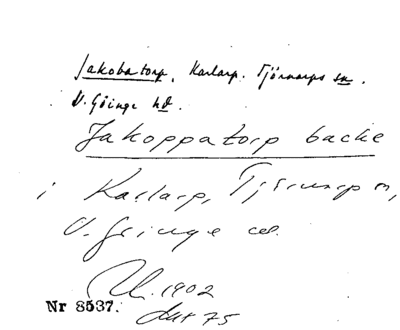 Jakobatorp, Karlarp. Tjörnarps sn.
V. Göinge hd.
Jakoppatorp backe
i Karlarp, Tjörnarp sn,
V. Göinge hd.
1902
Nr 8537.
75